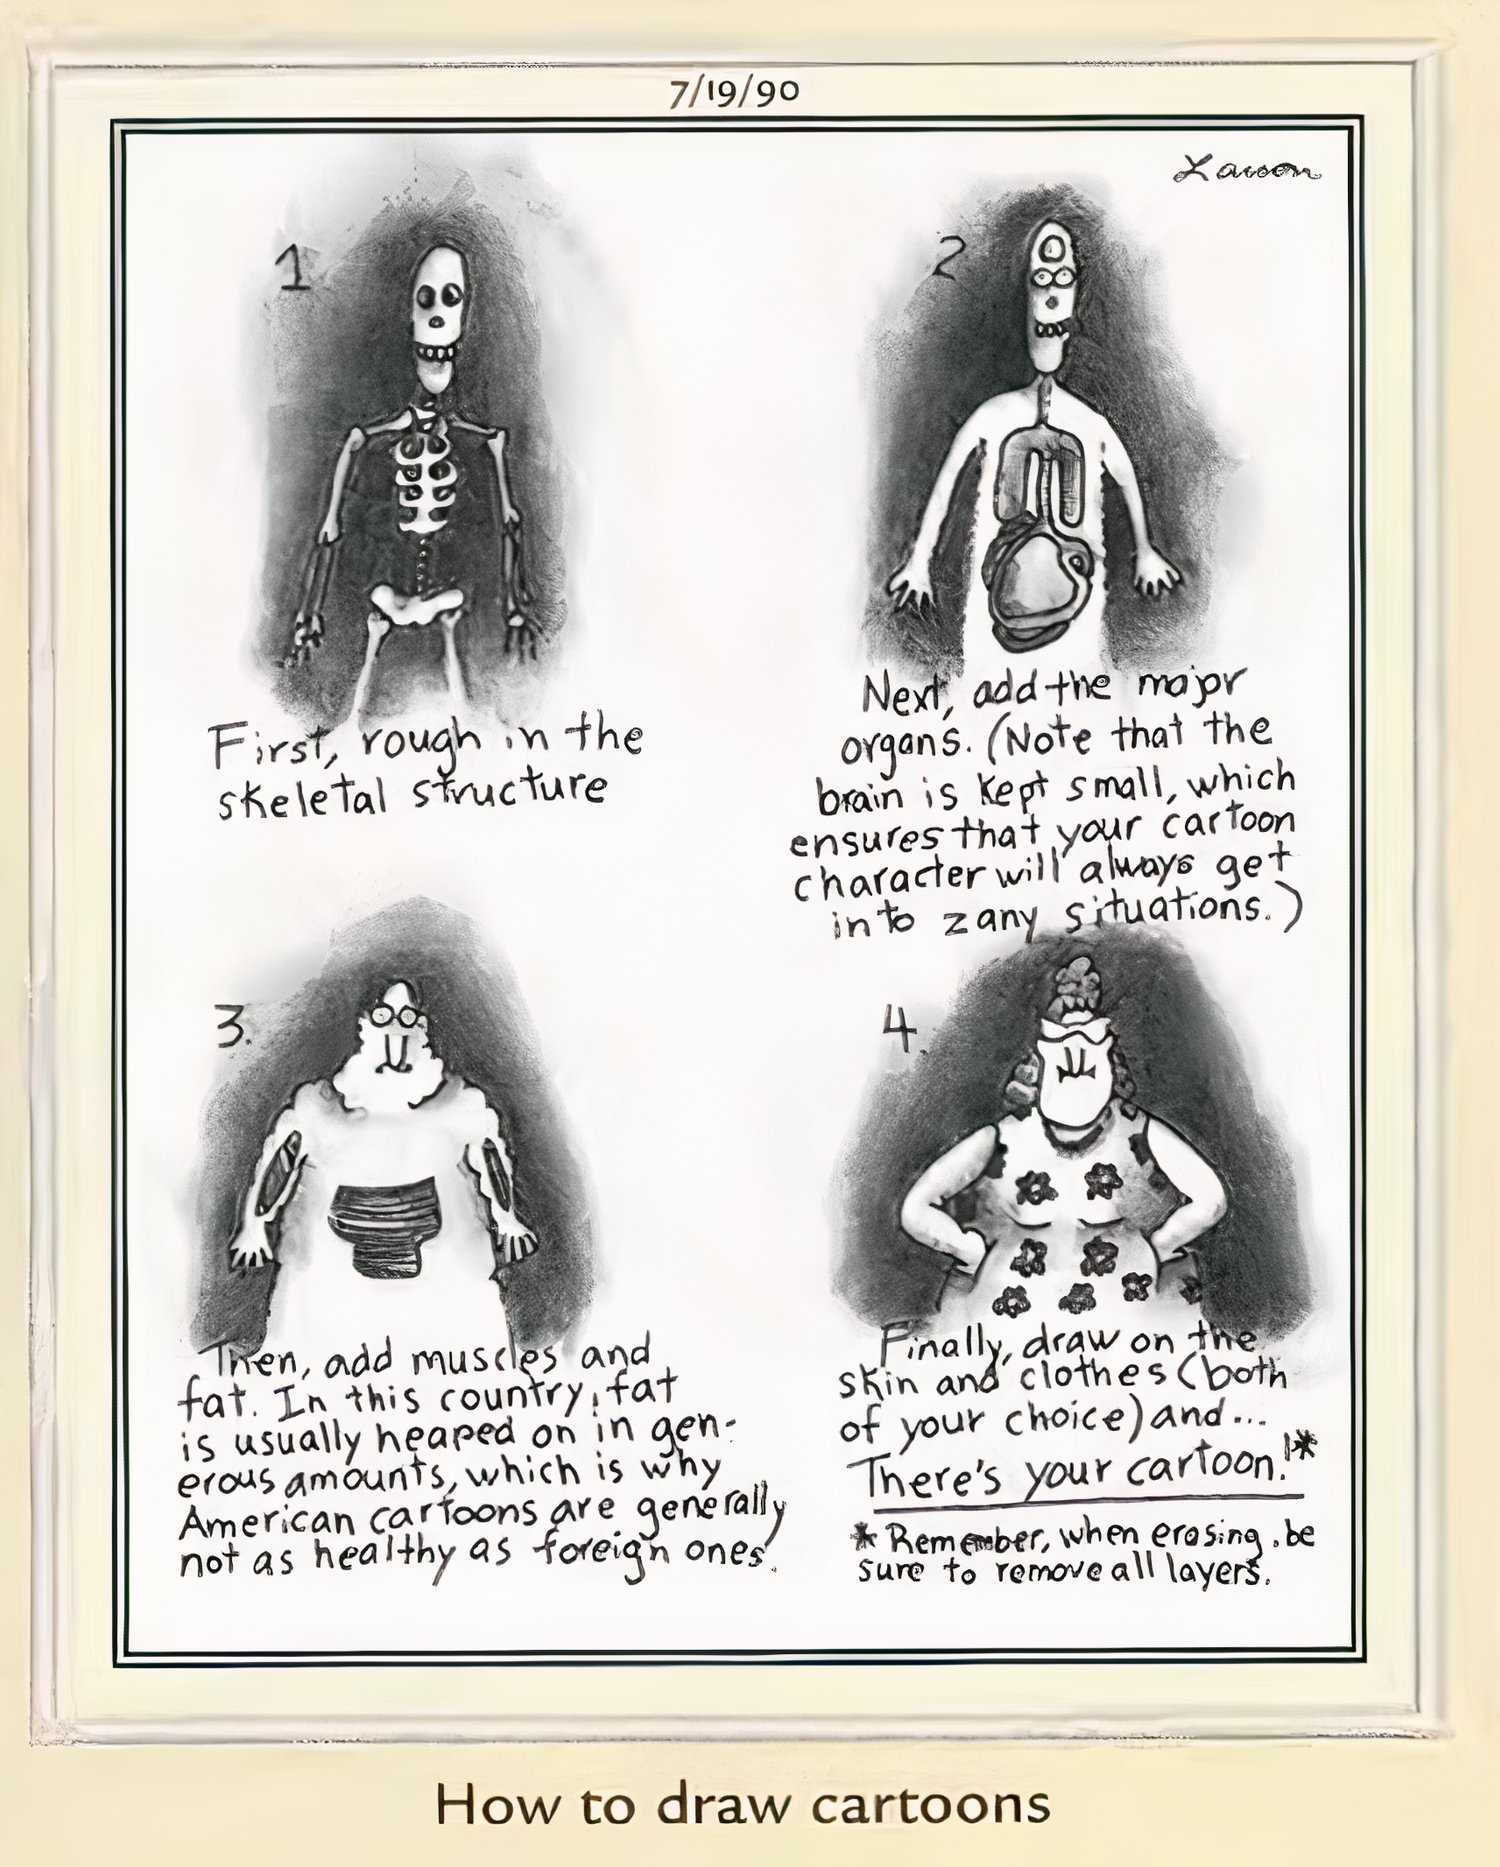 7/19/90
Larson
1.
First, rough in the
skeletal structure
2
Next, add the major
organs. (Note that the
brain is kept small, which
ensures that your cartoon
character will always get
into zany situations.)
3.
Then, add muscles and
fat. In this country, fat
is usually heaped on in gen-
erous amounts, which is why
American cartoons are generally
not as healthy as foreign ones.
4.
Finally, draw on the
skin and clothes (both
of your choice) and...
There's your cartoon!*
* Remember, when erasing, be
sure to remove all layers.
How to draw cartoons